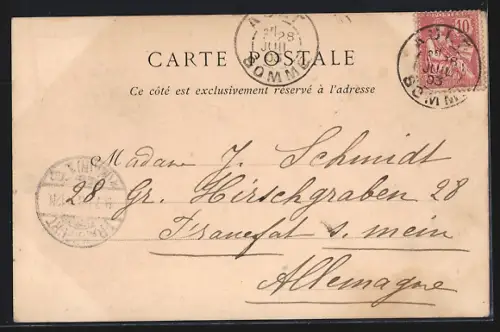 10
28
JUIL
03
SOMME
CARTE POSTALE
28
JUIL
03
SOMME
Ce côté est exclusivement réservé à l'adresse
Madame J. Schmidt
28 Gr. Hirschgraben 28
Francfat s. mein
Allemagne